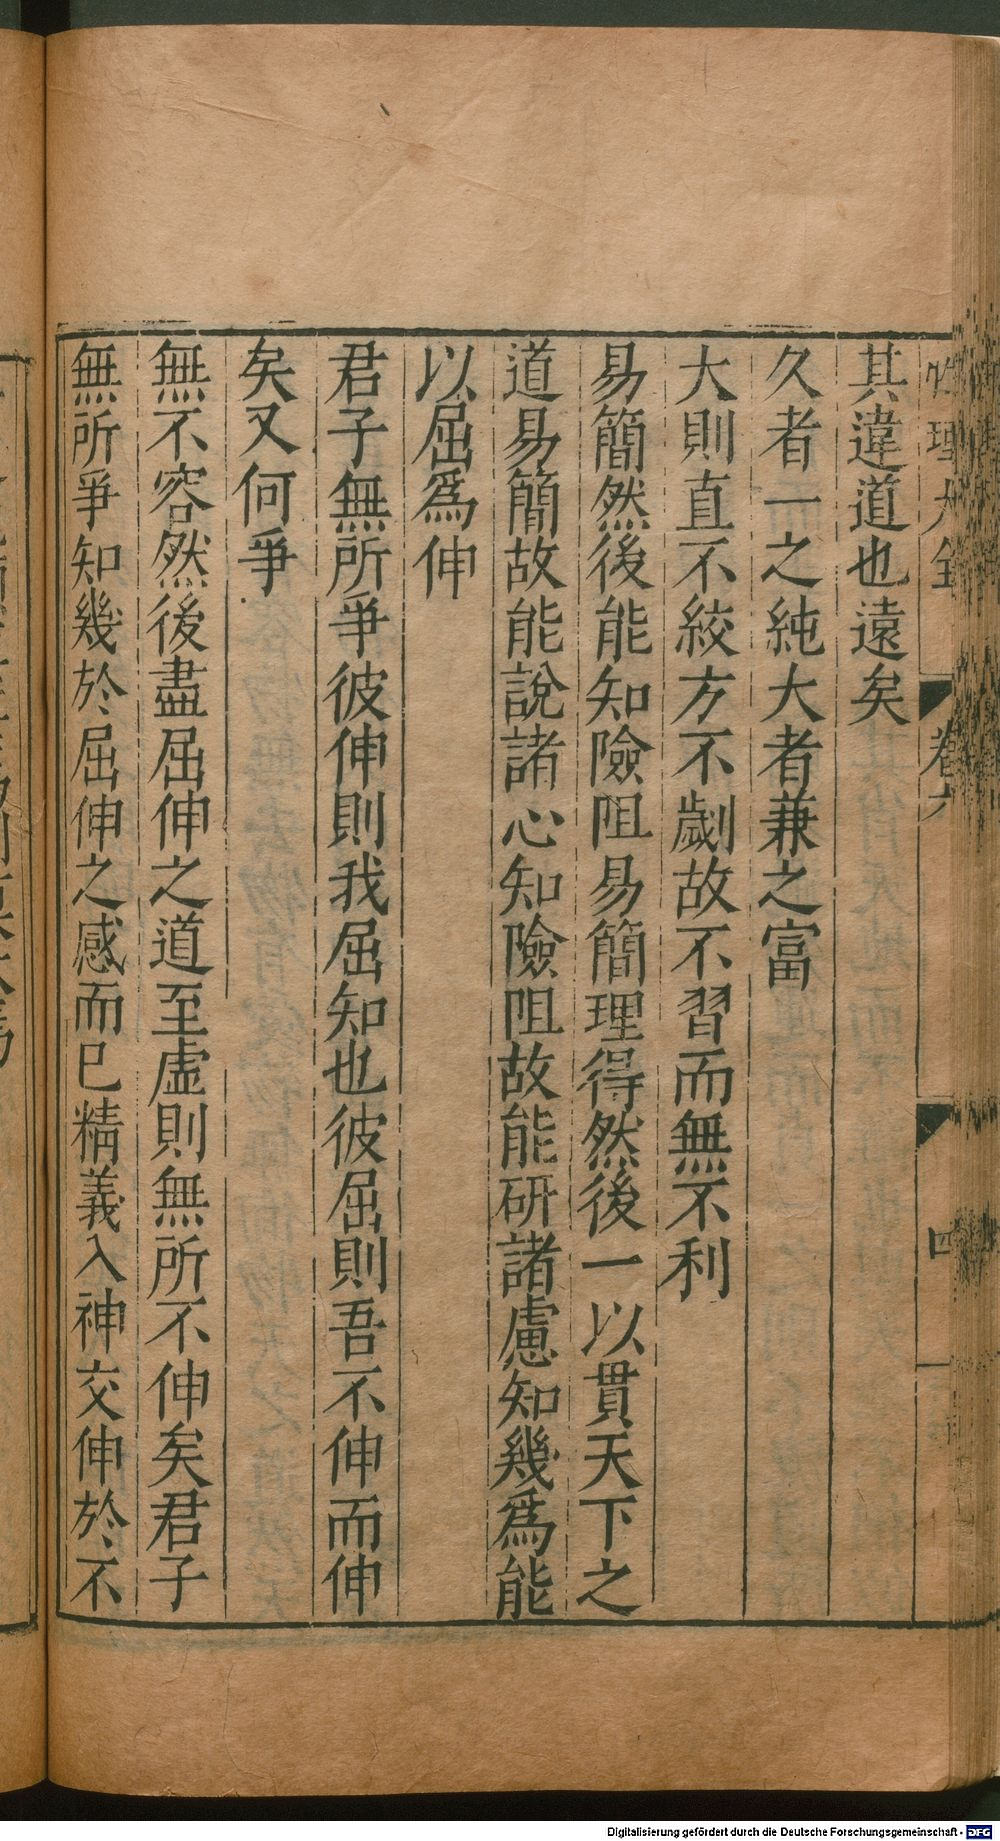 性理大全 卷六 四
其違道也遠矣
久者一之純大者兼之富
大則直不絞方不劌故不習而無不利
易簡然後能知險阻易簡理得然後一以貫天下之
道易簡故能說諸心知險阻故能研諸慮知幾爲能
以屈爲伸
君子無所爭彼伸則我屈知也彼屈則吾不伸而伸
矣又何爭
無不容然後盡屈伸之道至虛則無所不伸矣君子
無所爭知幾於屈伸之感而已精義入神交伸於不
Digitalisierung gefördert durch die Deutsche Forschungsgemeinschaft - DFG